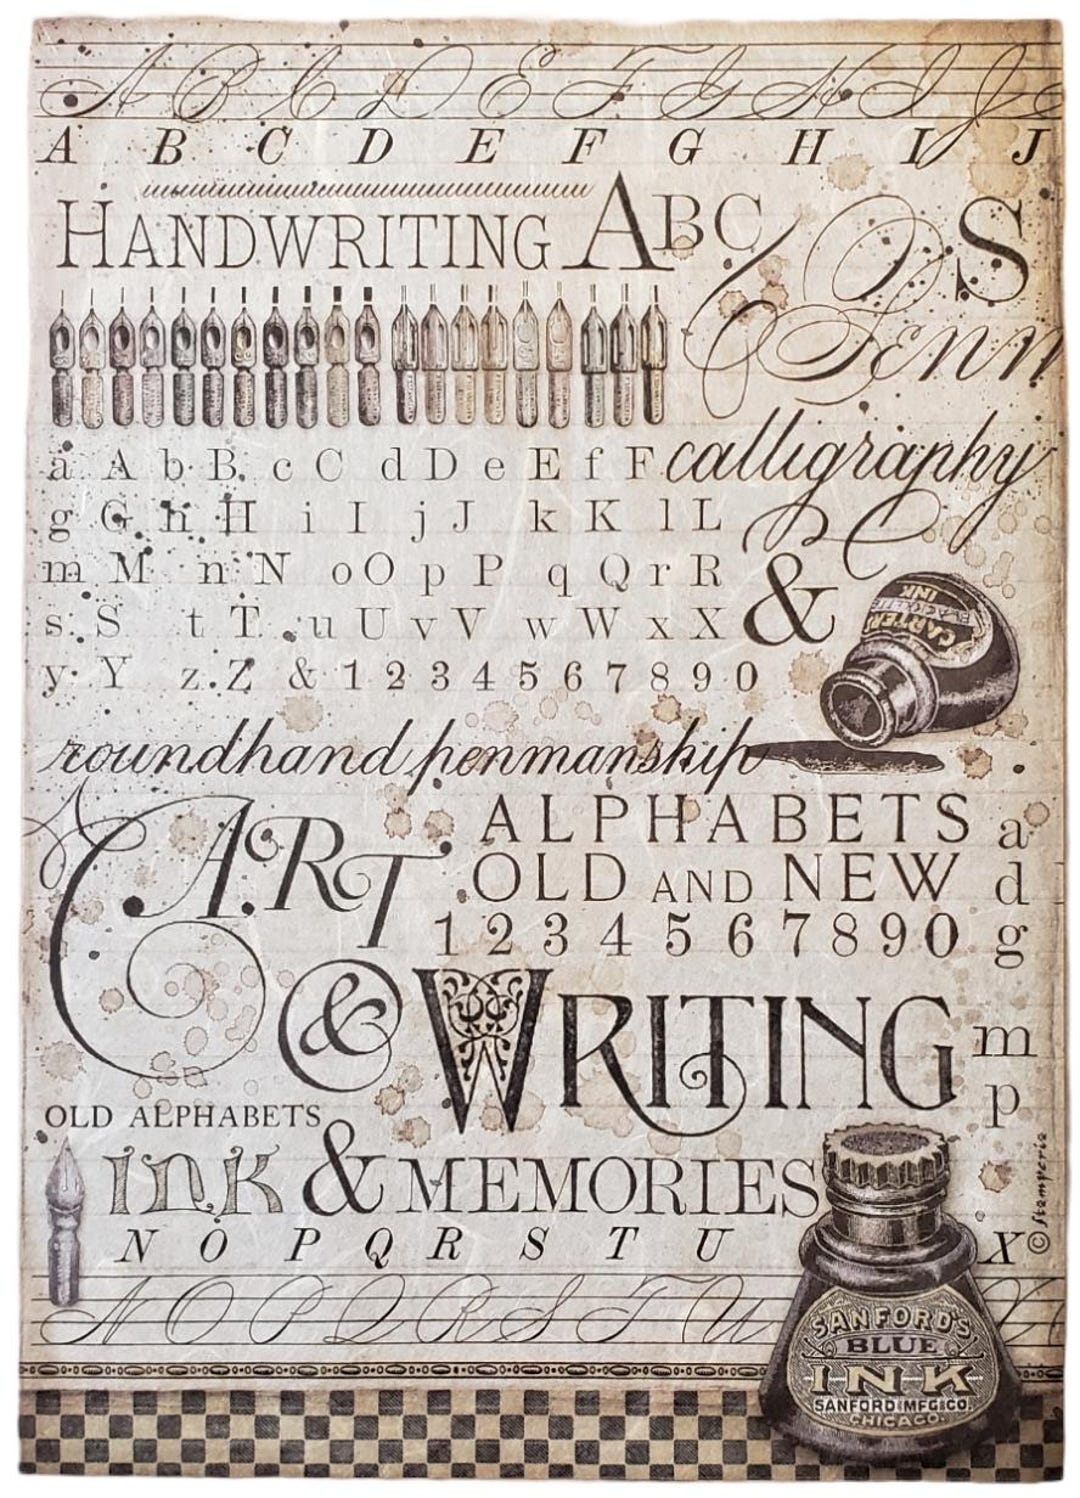 A B C D E F G H I J
A B C D E F G H I J
HANDWRITING ABC S
Penn
a A b B c C d D e E f F calligraphy
g G h H i I j J k K l L
m M n N o O p P q Q r R &
s S t T u U v V w W x X
y Y z Z & 1 2 3 4 5 6 7 8 9 0
CARTER'S
INK
roundhand penmanship
ART
ALPHABETS a
OLD AND NEW d
1 2 3 4 5 6 7 8 9 0 g
& WRITING m
p
OLD ALPHABETS
INK & MEMORIES
N O P Q R S T U X
© Stamperia
N O P Q R S T U
SANFORD'S
BLUE
INK
SANFORD MFG. CO.
CHICAGO.